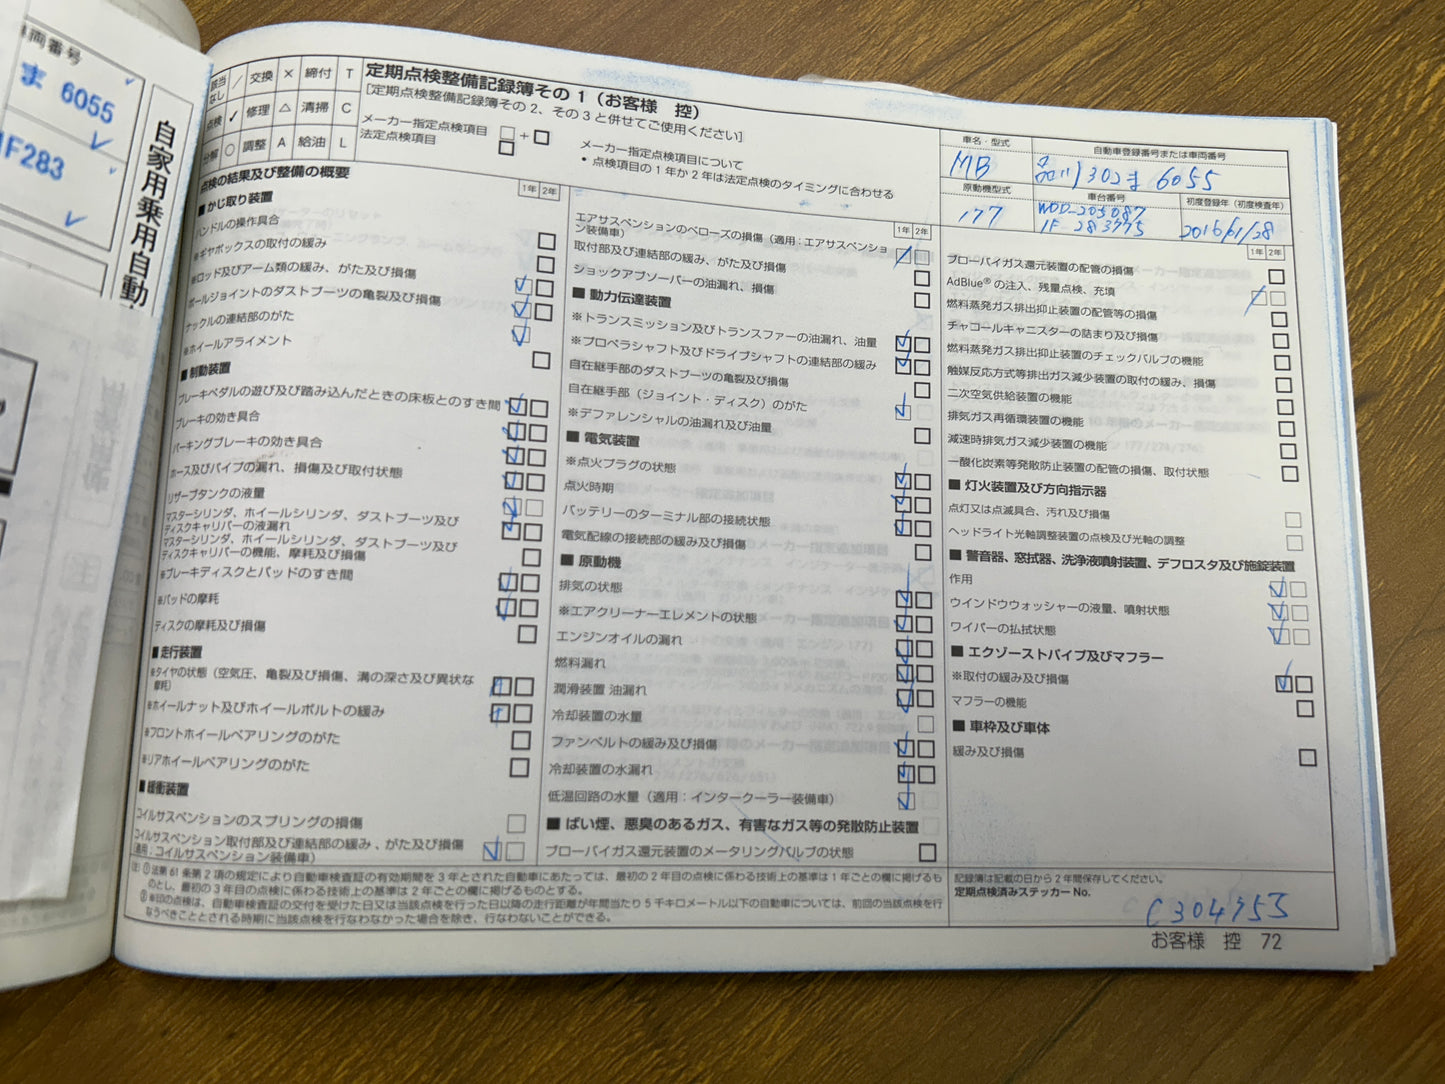 車両番号
ま 6055
1F283
自家用乗用自動
該当なし ／ 交換 × 締付 T
点検 ✓ 修理 △ 清掃 C
分解 ○ 調整 A 給油 L
定期点検整備記録簿その 1（お客様 控）
［定期点検整備記録簿その 2、その 3 と併せてご使用ください］
メーカー指定点検項目 □ + □
法定点検項目 □
メーカー指定点検項目について
• 点検項目の 1 年か 2 年は法定点検のタイミングに合わせる
車名・型式
MB
自動車登録番号または車両番号
品川 302 ま 6055
原動機型式
177
車台番号
WDD-205087
1F-283775
初度登録年（初度検査年）
2016/61/28
点検の結果及び整備の概要
1年 2年
■ かじ取り装置
ハンドルの操作具合
※ギヤボックスの取付の緩み
※ロッド及びアーム類の緩み、がた及び損傷
ボールジョイントのダストブーツの亀裂及び損傷
ナックルの連結部のがた
※ホイールアライメント
■ 制動装置
ブレーキペダルの遊び及び踏み込んだときの床板とのすき間
ブレーキの効き具合
パーキングブレーキの効き具合
ホース及びパイプの漏れ、損傷及び取付状態
リザーブタンクの液量
マスターシリンダ、ホイールシリンダ、ダストブーツ及び
ディスクキャリパーの液漏れ
マスターシリンダ、ホイールシリンダ、ダストブーツ及び
ディスクキャリパーの機能、摩耗及び損傷
※ブレーキディスクとパッドのすき間
※パッドの摩耗
ディスクの摩耗及び損傷
■ 走行装置
※タイヤの状態（空気圧、亀裂及び損傷、溝の深さ及び異状な
摩耗）
※ホイールナット及びホイールボルトの緩み
※フロントホイールベアリングのがた
※リアホイールベアリングのがた
■ 緩衝装置
コイルサスペンションのスプリングの損傷
コイルサスペンション取付部及び連結部の緩み 、がた及び損傷
（適用：コイルサスペンション装備車）
1年 2年
エアサスペンションのベローズの損傷（適用：エアサスペンショ
ン装備車）
取付部及び連結部の緩み、がた及び損傷
ショックアブソーバーの油漏れ、損傷
■ 動力伝達装置
※トランスミッション及びトランスファーの油漏れ、油量
※プロペラシャフト及びドライブシャフトの連結部の緩み
自在継手部のダストブーツの亀裂及び損傷
自在継手部（ジョイント・ディスク）のがた
※デファレンシャルの油漏れ及び油量
■ 電気装置
※点火プラグの状態
点火時期
バッテリーのターミナル部の接続状態
電気配線の接続部の緩み及び損傷
■ 原動機
排気の状態
※エアクリーナーエレメントの状態
エンジンオイルの漏れ
燃料漏れ
潤滑装置 油漏れ
冷却装置の水量
ファンベルトの緩み及び損傷
冷却装置の水漏れ
低温回路の水量（適用：インタークーラー装備車）
■ ばい煙、悪臭のあるガス、有害なガス等の発散防止装置
ブローバイガス還元装置のメータリングバルブの状態
1年 2年
ブローバイガス還元装置の配管の損傷
AdBlue® の注入、残量点検、充填
燃料蒸発ガス排出抑止装置の配管等の損傷
チャコールキャニスターの詰まり及び損傷
燃料蒸発ガス排出抑止装置のチェックバルブの機能
触媒反応方式等排出ガス減少装置の取付の緩み、損傷
二次空気供給装置の機能
排気ガス再循環装置の機能
減速時排気ガス減少装置の機能
一酸化炭素等発散防止装置の配管の損傷、取付状態
■ 灯火装置及び方向指示器
点灯又は点滅具合、汚れ及び損傷
ヘッドライト光軸調整装置の点検及び光軸の調整
■ 警音器、窓拭器、洗浄液噴射装置、デフロスタ及び施錠装置
作用
ウインドウウォッシャーの液量、噴射状態
ワイパーの払拭状態
■ エクゾーストパイプ及びマフラー
※取付の緩み及び損傷
マフラーの機能
■ 車枠及び車体
緩み及び損傷
（注）① 法第 61 条第 2 項の規定により自動車検査証の有効期間を 3 年とされた自動車にあたっては、最初の 2 年目の点検に係わる技術上の基準は 1 年ごとの欄に掲げるも
のとし、最初の 3 年目の点検に係わる技術上の基準は 2 年ごとの欄に掲げるものとする。
② ※印の点検は、自動車検査証の交付を受けた日又は当該点検を行った日以降の走行距離が年間当たり 5 千キロメートル以下の自動車については、前回の当該点検を行
なうべきこととされる時期に当該点検を行なわなかった場合を除き、行なわないことができる。
記録簿は記載の日から 2 年間保存してください。
定期点検済みステッカー No.
C304755
お客様 控 72